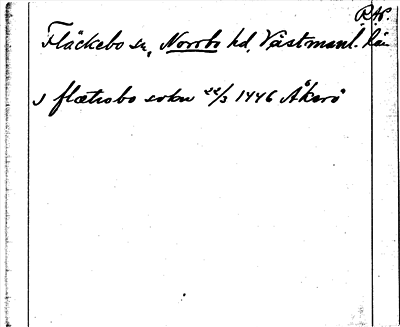 R.A.P.
Fläckebo sn, Norrbo hd, Västmanl. län
J flætrobo sokn 22/3 1446 Åkerö